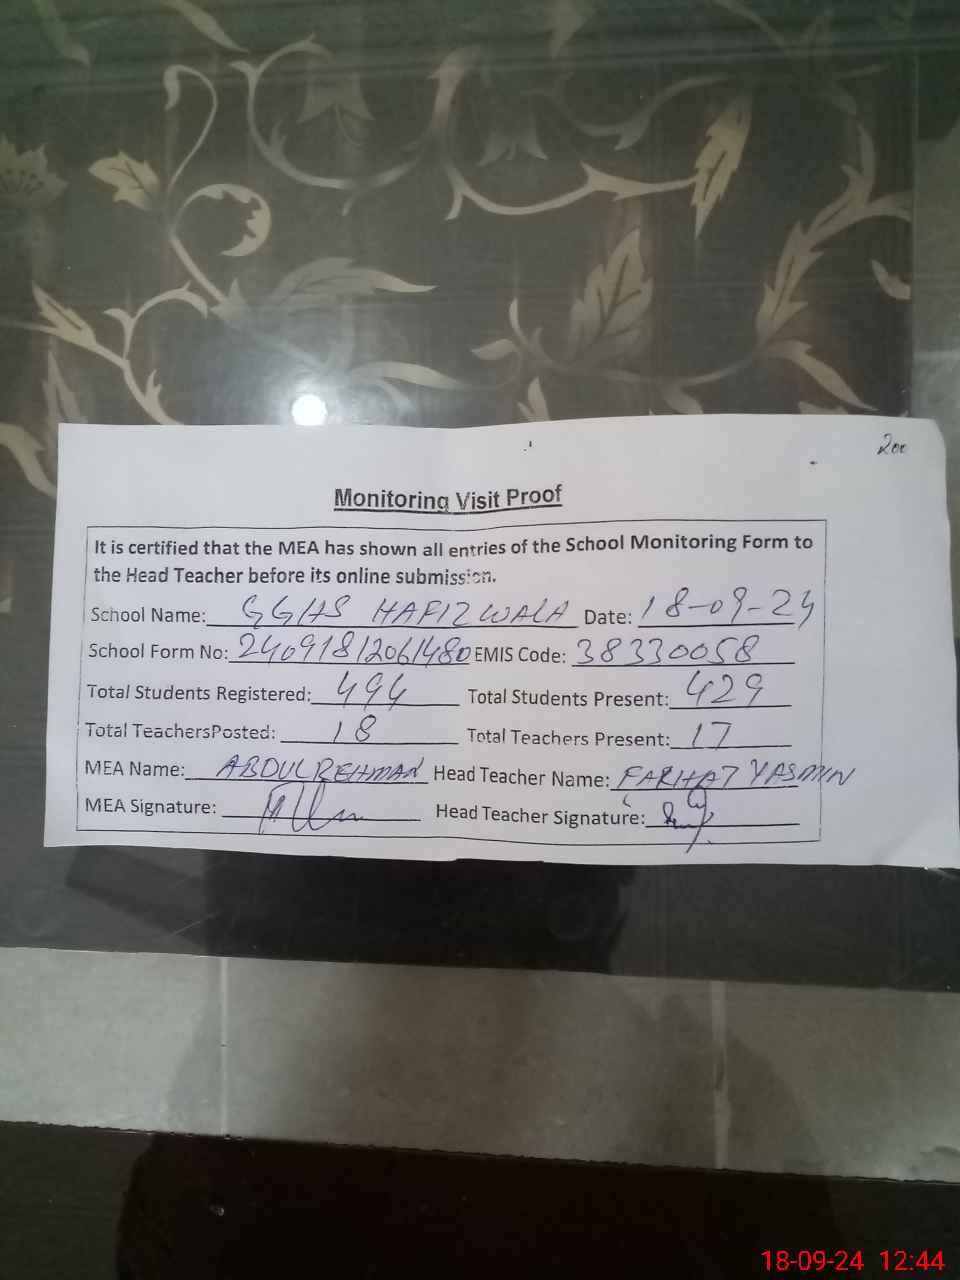 200
Monitoring Visit Proof
It is certified that the MEA has shown all entries of the School Monitoring Form to
the Head Teacher before its online submission.
School Name: GGHS HAFIZWALA Date: 18-09-24
School Form No: 24091812061480 EMIS Code: 38330058
Total Students Registered: 494 Total Students Present: 429
Total TeachersPosted: 18 Total Teachers Present: 17
MEA Name: ABDULREHMAN Head Teacher Name: FARHAT YASMIN
MEA Signature: Head Teacher Signature:
18-09-24 12:44